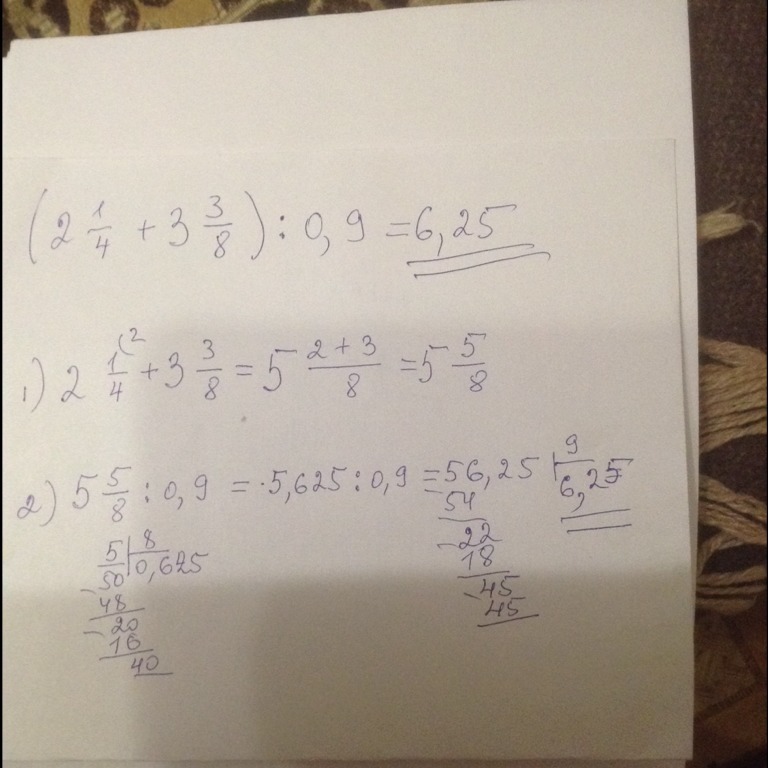 (2 1/4 + 3 3/8) : 0,9 = 6,25
1) 2 1/4 (2 + 3 3/8 = 5 2+3/8 = 5 5/8
2) 5 5/8 : 0,9 = 5,625 : 0,9 = 56,25 | 9
6,25
54
-22
18
-45
45
5 | 8
50 0,625
-48
-20
16
40